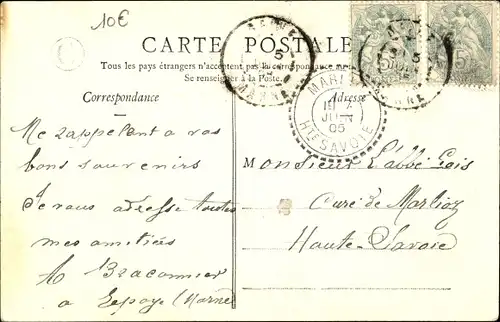 10€
CARTE POSTALE
Tous les pays étrangers n'acceptent pas la correspondance au
Se renseigner à la Poste.
Correspondance
Adresse
MARNE
MARNE
MARLIOZ
JUIN
05
HTE SAVOIE
5
5
Me rappelant a vos
bons souvenirs
Je vous adresse toutes
mes amitiés
A Braconnier
a Lepoye (Marne)
Monsieur l'abbé
Curé de Marlioz
Haute-Savoie